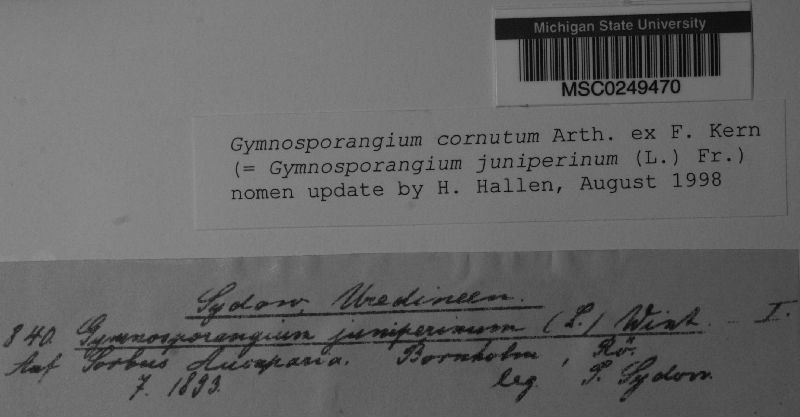 Michigan State University
MSC0249470
Gymnosporangium cornutum Arth. ex F. Kern
(= Gymnosporangium juniperinum (L.) Fr.)
nomen update by H. Hallen, August 1998
Sydow, Uredineen.
840. Gymnosporangium juniperinum (L.) Wint. I.
Auf Sorbus Aucuparia. Bornholm, Rö.
7. 1893. leg. P. Sydow.